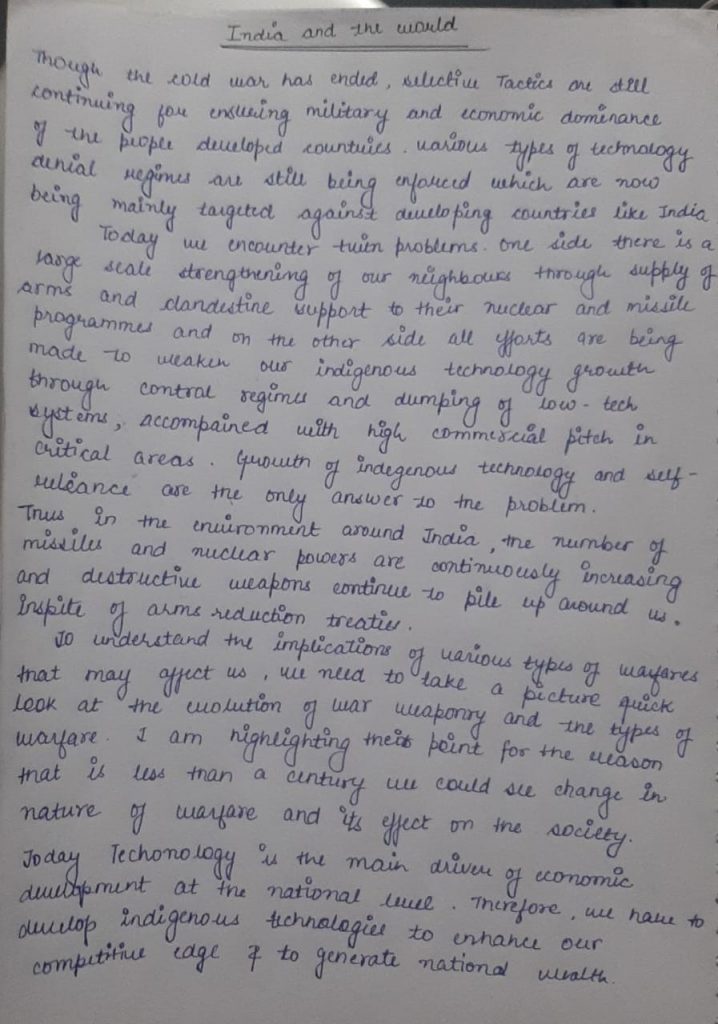 India and the world
Though the cold war has ended, selective Tactics are still
continuing for ensuering military and economic dominance
of the peopee developed countries. various types of technology
denial regimes are still being enforced which are now
being mainly targeted against developing countries like India
Today we encounter twin problems. One side there is a
large scale strengthening of our neighbours through supply of
arms and clandestine support to their nuclear and missile
programmes and on the other side all efforts are being
made to weaken our indigenous technology growth
through control regimes and dumping of low-tech
systems, accompained with high commercial pitch in
critical areas. Growth of indegenous technology and self-
releance are the only answer to the problem.
Thus in the environment around India, the number of
missiles and nuclear powers are continuously increasing
and destructive weapons continue to pile up around us.
Inspite of arms reduction treaties.
To understand the implications of various types of warfares
that may affect us, we need to take a picture quick
look at the evolution of war weaponry and the types of
warfare. I am highlighting their point for the reason
that is less than a century we could see change in
nature of warfare and its effect on the society.
Today Techonology is the main driver of economic
development at the national level. Therefore, we have to
develop indigenous technologies to enhance our
competitive edge & to generate national wealth.